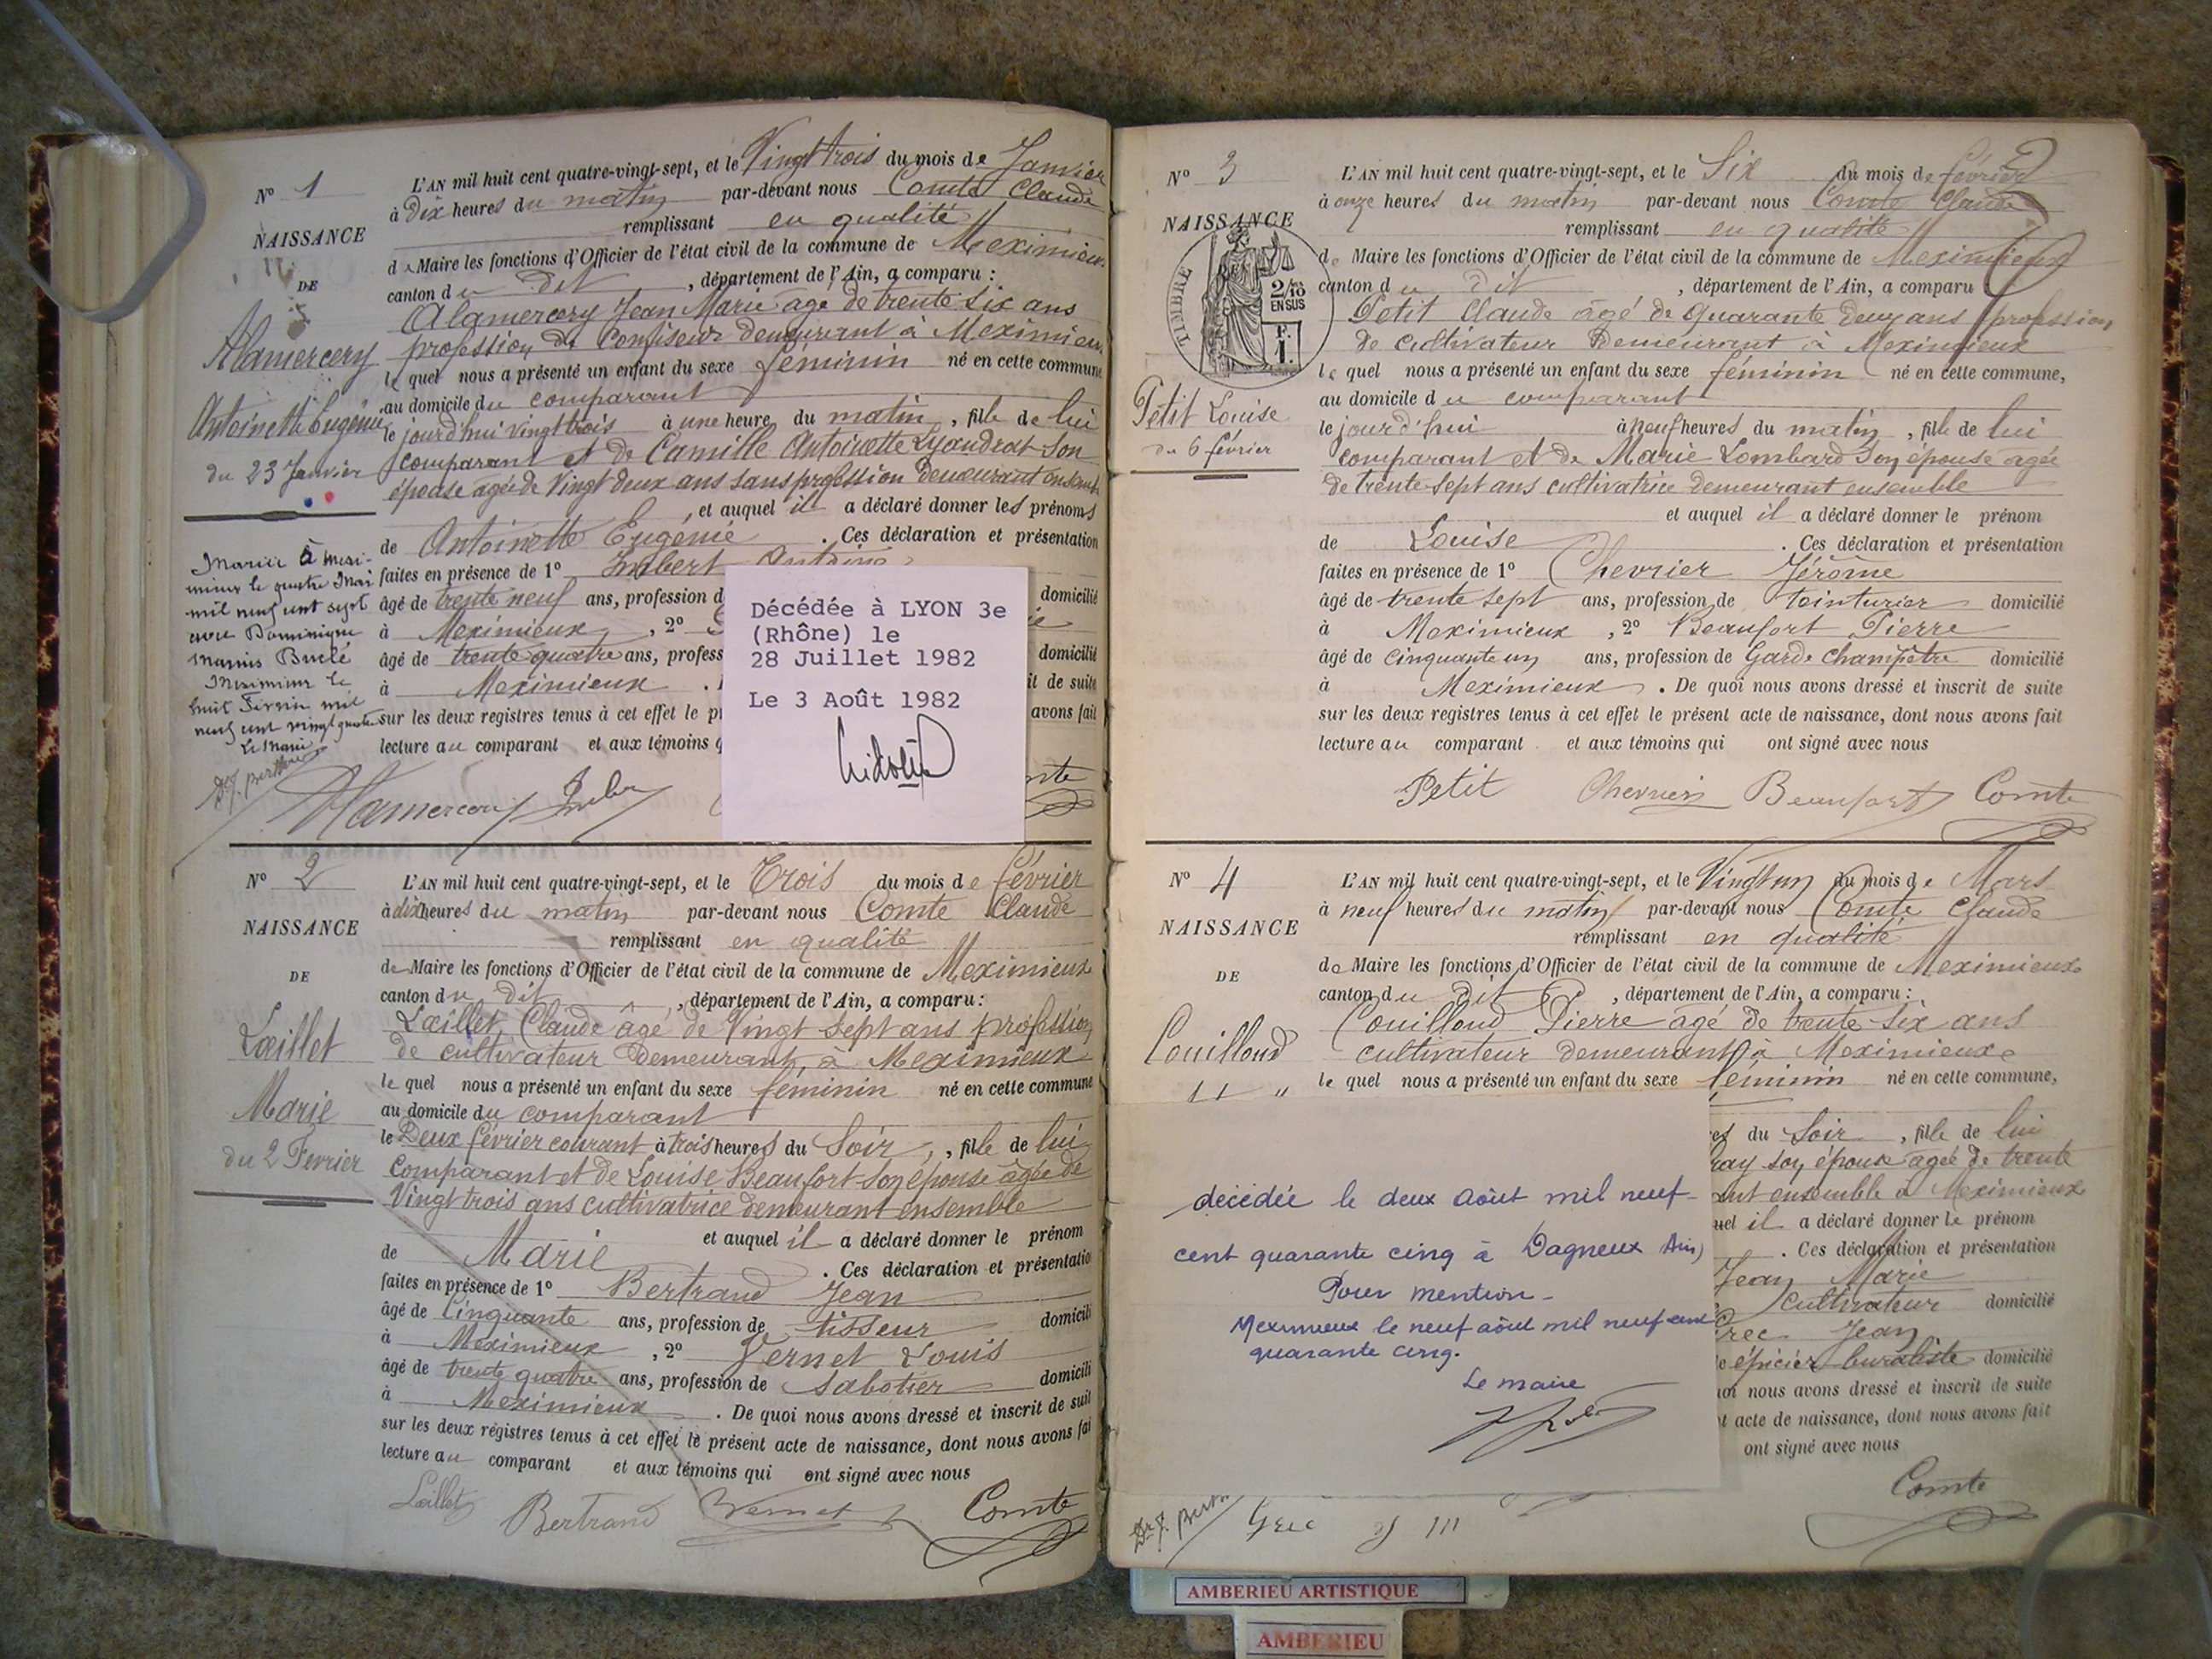 N° 1
NAISSANCE
DE
Alamercery
Antoinette Eugénie
du 23 Janvier
Marié à Mexi-
mieux le quatre Mai
mil neuf cent sept
avec Dominique
Meximieux le
huit Février mil
neuf cent vingt quatre
Le Maire
L'AN mil huit cent quatre-vingt-sept, et le Vingt trois du mois de Janvier
à dix heures du matin par-devant nous Comte Claude
remplissant en qualité
de Maire les fonctions d'Officier de l'état civil de la commune de Meximieux
canton du dit, département de l'Ain, a comparu :
Alamercery Jean Marie âgé de trente six ans
profession de Confiseur demeurant à Meximieux
le quel nous a présenté un enfant du sexe féminin né en cette commune
au domicile du comparant
le jourd'hui vingt trois à une heure du matin, fille de lui
comparant et de Camille Antoinette Lyaudrat son
épouse agée de Vingt deux ans sans profession demeurant ensemble
, et auquel il a déclaré donner les prénoms
de Antoinette Eugénie. Ces déclaration et présentation
faites en présence de 1° Imbert Antoine
âgé de trente neuf ans, profession d domicilié
à Meximieux, 2°
âgé de trente quatre ans, profess domicilié
à Meximieux. it de suite
sur les deux registres tenus à cet effet le pr avons fait
lecture au comparant et aux témoins q
Alamercery Imber
Décédée à LYON 3e
(Rhône) le
28 Juillet 1982
Le 3 Août 1982
N° 2
NAISSANCE
DE
Lœillet
Marie
du 2 Fevrier
L'AN mil huit cent quatre-vingt-sept, et le Trois du mois de février
à dix heures du matin par-devant nous Comte Claude
remplissant en qualité
de Maire les fonctions d'Officier de l'état civil de la commune de Meximieux
canton du dit, département de l'Ain, a comparu :
Lœillet Claude âgé de Vingt sept ans profession
de cultivateur demeurant à Meximieux
le quel nous a présenté un enfant du sexe féminin né en cette commune
au domicile du comparant
le Deux février courant à trois heures du Soir, fille de lui
comparant et de Louise Beaufort son épouse âgée de
Vingt trois ans cultivatrice demeurant ensemble
et auquel il a déclaré donner le prénom
de Marie. Ces déclaration et présentatio
faites en présence de 1° Bertrand Jean
âgé de Cinquante ans, profession de tisseur domicili
à Meximieux, 2° Vernet Louis
âgé de trente quatre ans, profession de Sabotier domicili
à Meximieux. De quoi nous avons dressé et inscrit de suit
sur les deux régistres tenus à cet effet le présent acte de naissance, dont nous avons fai
lecture au comparant et aux témoins qui ont signé avec nous
Lœillet Bertrand Vernet Comte
N° 3
NAISSANCE
TIMBRE
2/10
EN SUS
F.
1.
Petit Louise
du 6 février
L'AN mil huit cent quatre-vingt-sept, et le Six du mois de février
à onze heures du matin par-devant nous Comte Claude
remplissant en qualité
de Maire les fonctions d'Officier de l'état civil de la commune de Meximieux
canton du dit, département de l'Ain, a comparu
Petit Claude âgé de quarante deux ans profession
de cultivateur demeurant à Meximieux
le quel nous a présenté un enfant du sexe féminin né en cette commune,
au domicile du comparant
le jourd'hui à neuf heures du matin, fille de lui
comparant et de Marie Lombard son épouse agée
de trente sept ans cultivatrice demeurant ensemble
et auquel il a déclaré donner le prénom
de Louise. Ces déclaration et présentation
faites en présence de 1° Chevrier Jérôme
âgé de trente sept ans, profession de teinturier domicilié
à Meximieux, 2° Beaufort Pierre
âgé de cinquante un ans, profession de Garde Champêtre domicilié
à Meximieux. De quoi nous avons dressé et inscrit de suite
sur les deux registres tenus à cet effet le présent acte de naissance, dont nous avons fait
lecture au comparant et aux témoins qui ont signé avec nous
Petit Chevrier Beaufort Comte
N° 4
NAISSANCE
DE
Couilloud
L'AN mil huit cent quatre-vingt-sept, et le Vingt un du mois de Mars
à neuf heures du matin par-devant nous Comte Claude
remplissant en qualité
de Maire les fonctions d'Officier de l'état civil de la commune de Meximieux
canton du dit, département de l'Ain, a comparu :
Couilloud Pierre agé de trente six ans
cultivateur demeurant à Meximieux
le quel nous a présenté un enfant du sexe féminin né en cette commune,
es du Soir, fille de lui
ray son épouse agée de trente
ant ensemble à Meximieux
uel il a déclaré donner le prénom
. Ces déclaration et présentation
Jean Marie
cultivateur domicilié
rec Jean
e épicier buraliste domicilié
uoi nous avons dressé et inscrit de suite
t acte de naissance, dont nous avons fait
ont signé avec nous
Comte
décédée le deux août mil neuf-
cent quarante cinq à Dagneux Ain)
Pour mention-
Meximieux le neuf août mil neuf cent
quarante cinq.
Le maire
Grec
AMBERIEU ARTISTIQUE
AMBERIEU